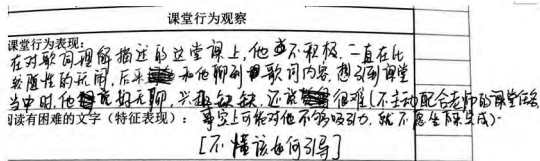 课堂行为观察
课堂行为表现：
在对歌词理解描述的这堂课上，他不积极，一直在比
较随性的玩闹，后来和他聊到歌词内容，想引到课堂
当中时，他说的无聊，兴趣缺缺，还说很难（不主动配合老师的课堂任务
阅读有困难的文字（特征表现）：事实上可能对他不够吸引力，就不愿坐下来完成）.
[不懂该如何引导]